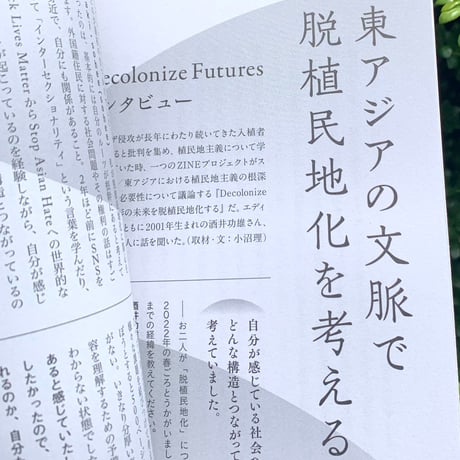 東アジアの文脈で
脱植民地化を考える
ecolonize Futures
ンタビュー
ザ侵攻が長年にわたり続いてきた入植者
ると批判を集め、植民地主義について学
いた時、一つのZINEプロジェクトがス
東アジアにおける植民地主義の根深
必要性について議論する『Decolonize
の未来を脱植民地化する』だ。エディ
ともに2001年生まれの酒井功雄さん、
人に話を聞いた。(取材・文:小沼理)
自分が感じている社会の
どんな構造とつながって
考えていました。
──お二人が「脱植民地化」につ
2022年の春ごろとうかがいまし
までの経緯を教えてください。
がない。いきなり分厚い
容を理解するための予
わからない状態でした
あると感じていたし
したかったので、
れるのか、自分な
ます。外国籍住民に対する社会問題やその権利の話はすご
近で、自分にも関係があること、2年ほど前にSNSを
て「インターセクショナリティ」という言葉を学んだり、
k Lives MatterからStop Asian Hateへの世界的な
が起こっているのを経験しながら、自分が感じ
造とつながっているの